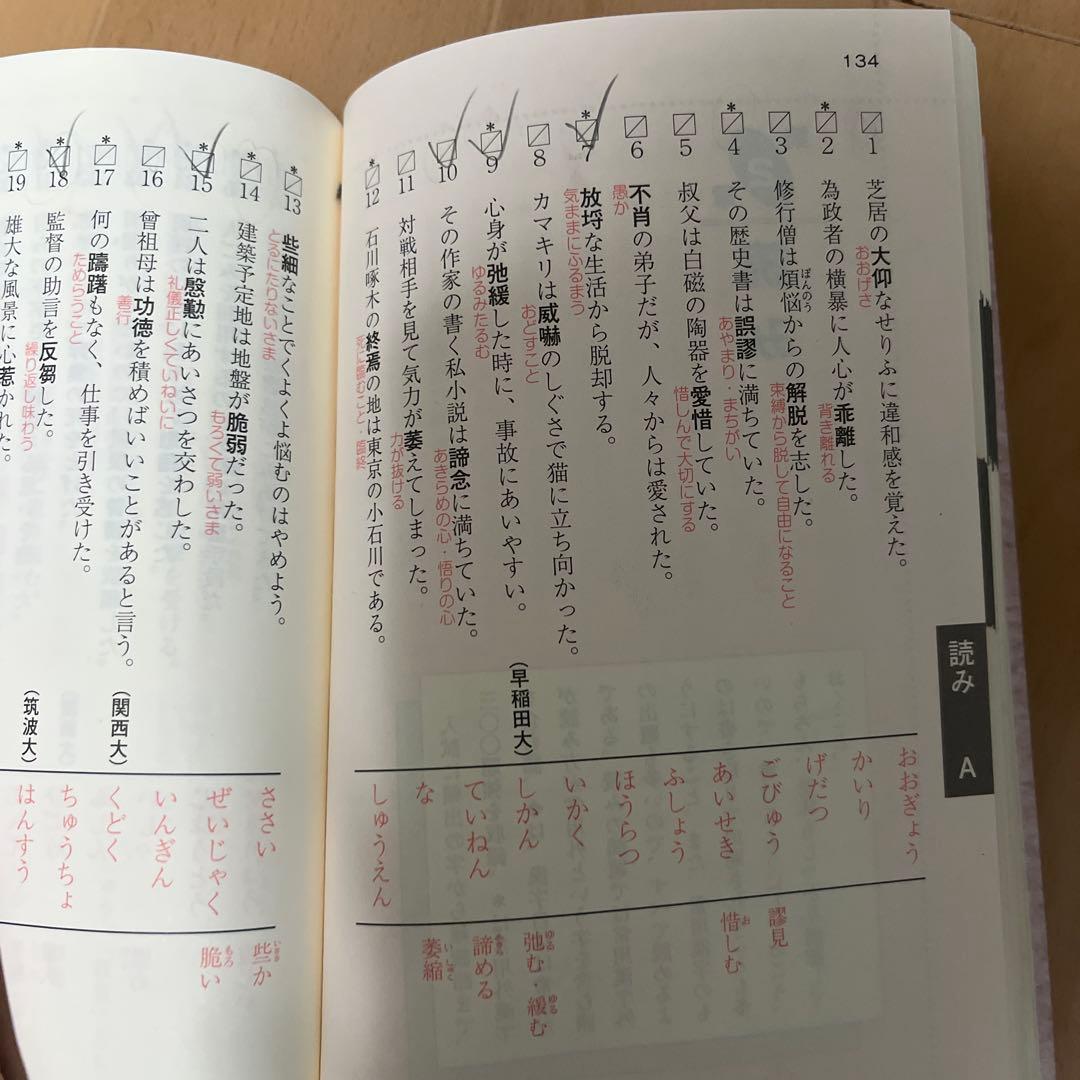 134
読み A
1 芝居の大仰なせりふに違和感を覚えた。
おおげさ
おおぎょう
*2 為政者の横暴に人心が乖離した。
背き離れる
かいり
3 修行僧は煩悩からの解脱を志した。
ぼんのう
束縛から脱して自由になること
げだつ
*4 その歴史書は誤謬に満ちていた。
あやまり・まちがい
ごびゅう
謬見
5 叔父は白磁の陶器を愛惜していた。
惜しんで大切にする
あいせき
惜しむ
お
6 不肖の弟子だが、人々からは愛された。
愚か
ふしょう
*7 放埓な生活から脱却する。
気ままにふるまう
ほうらつ
8 カマキリは威嚇のしぐさで猫に立ち向かった。
おどすこと
いかく
*9 心身が弛緩した時に、事故にあいやすい。
(早稲田大)
ゆるみたるむ
しかん
弛む・緩む
ゆる ゆる
10 その作家の書く私小説は諦念に満ちていた。
あきらめの心・悟りの心
ていねん
諦める
あきら
11 対戦相手を見て気力が萎えてしまった。
力が抜ける
な
萎縮
いしゅく
*12 石川啄木の終焉の地は東京の小石川である。
死に臨むこと・臨終
しゅうえん
*13 些細なことでくよくよ悩むのはやめよう。
とるにたりないさま
ささい
些か
いささ
*14 建築予定地は地盤が脆弱だった。
もろくて弱いさま
ぜいじゃく
脆い
もろ
*15 二人は慇懃にあいさつを交わした。
礼儀正しくていねいに
いんぎん
16 曾祖母は功徳を積めばいいことがあると言う。
(関西大)
善行
くどく
*17 何の躊躇もなく、仕事を引き受けた。
ためらうこと
ちゅうちょ
*18 監督の助言を反芻した。
(筑波大)
繰り返し味わう
はんすう
*19 雄大な風景に心惹かれた。